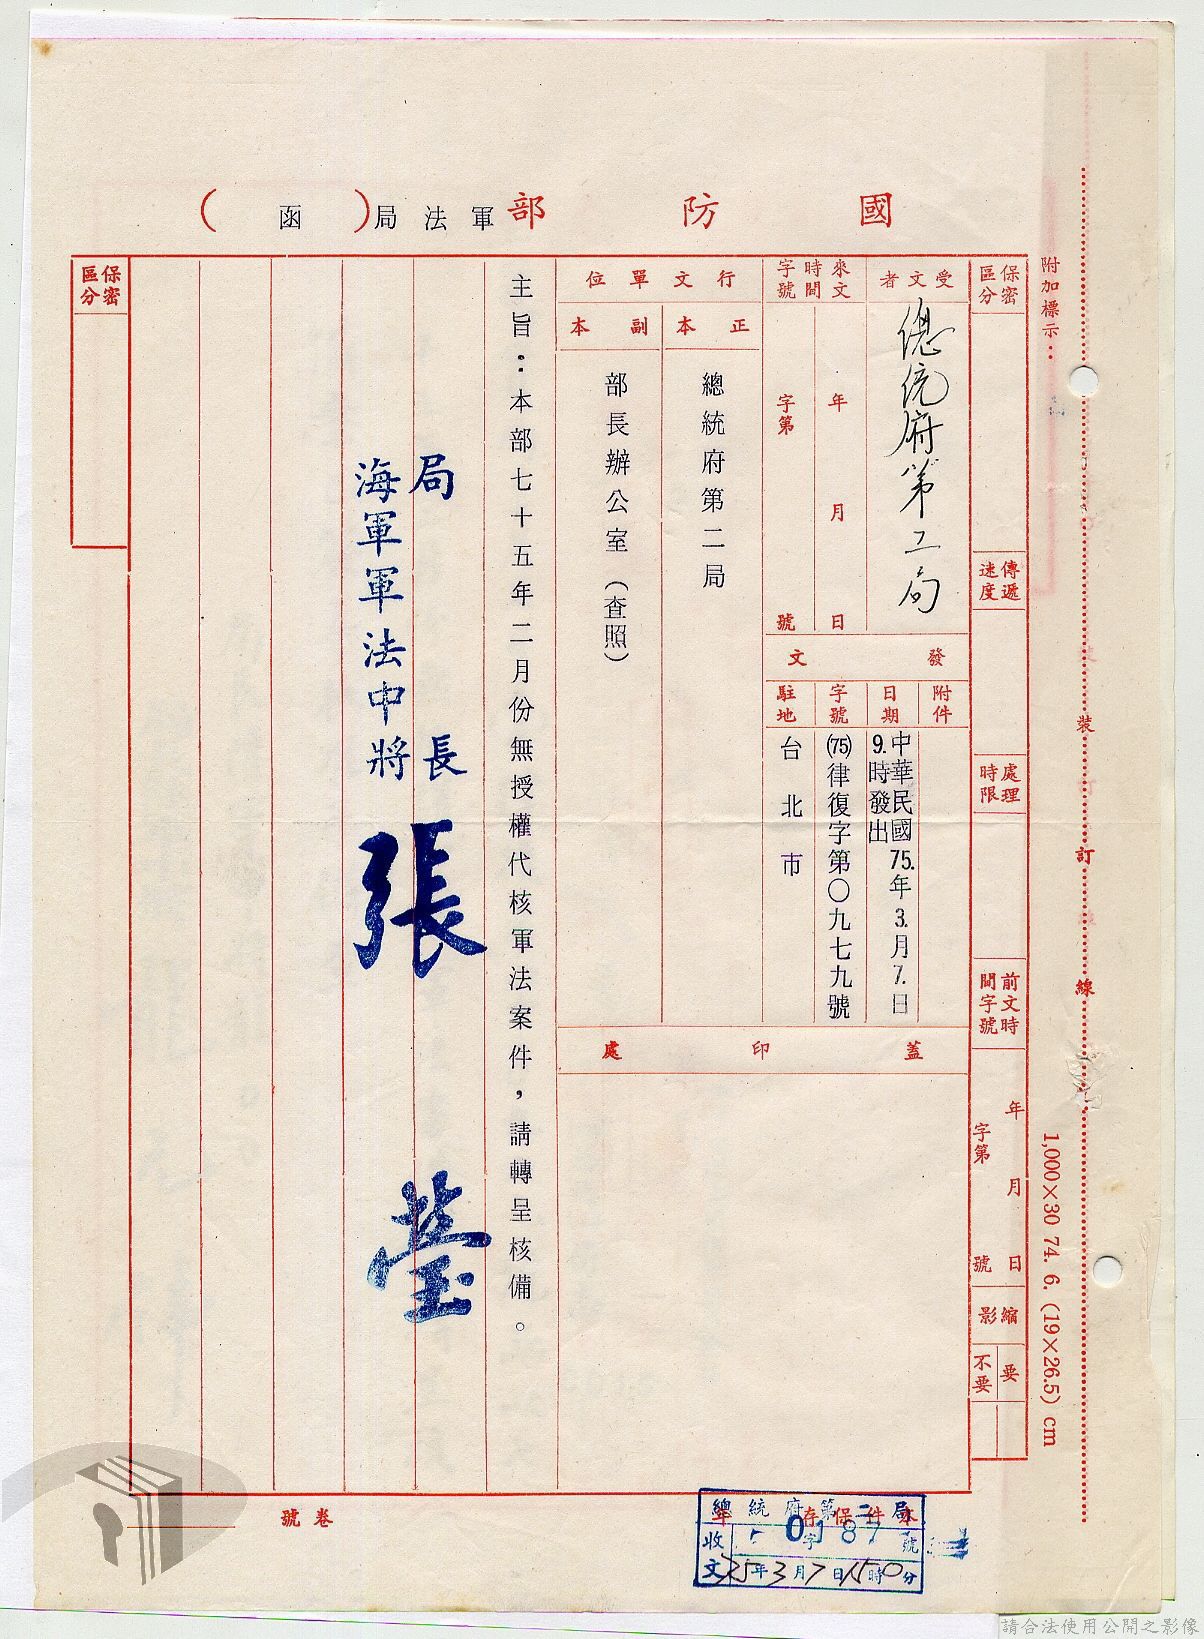 國防部軍法局(函)
附加標示：
裝訂線
1,000×30 74. 6. (19×26.5) cm
保密區分
傳遞速度
處理時限
前文時間字號
年月日
字第號
縮影
要
不要
受文者
總統府第二局
來文時間字號
年月日
字第號
發文
附件
日期
中華民國75.年3.月7.日
9.時發出
字號
(75)律復字第〇九七九號
駐地
台北市
行文單位
正本
總統府第二局
副本
部長辦公室（查照）
蓋印處
主旨：本部七十五年二月份無授權代核軍法案件，請轉呈核備。
局長
海軍軍法中將
張瑩
保密區分
卷號
本件保存
總統府第二局
收文
字
187號
75年3月7日15時0分
請合法使用公開之影像